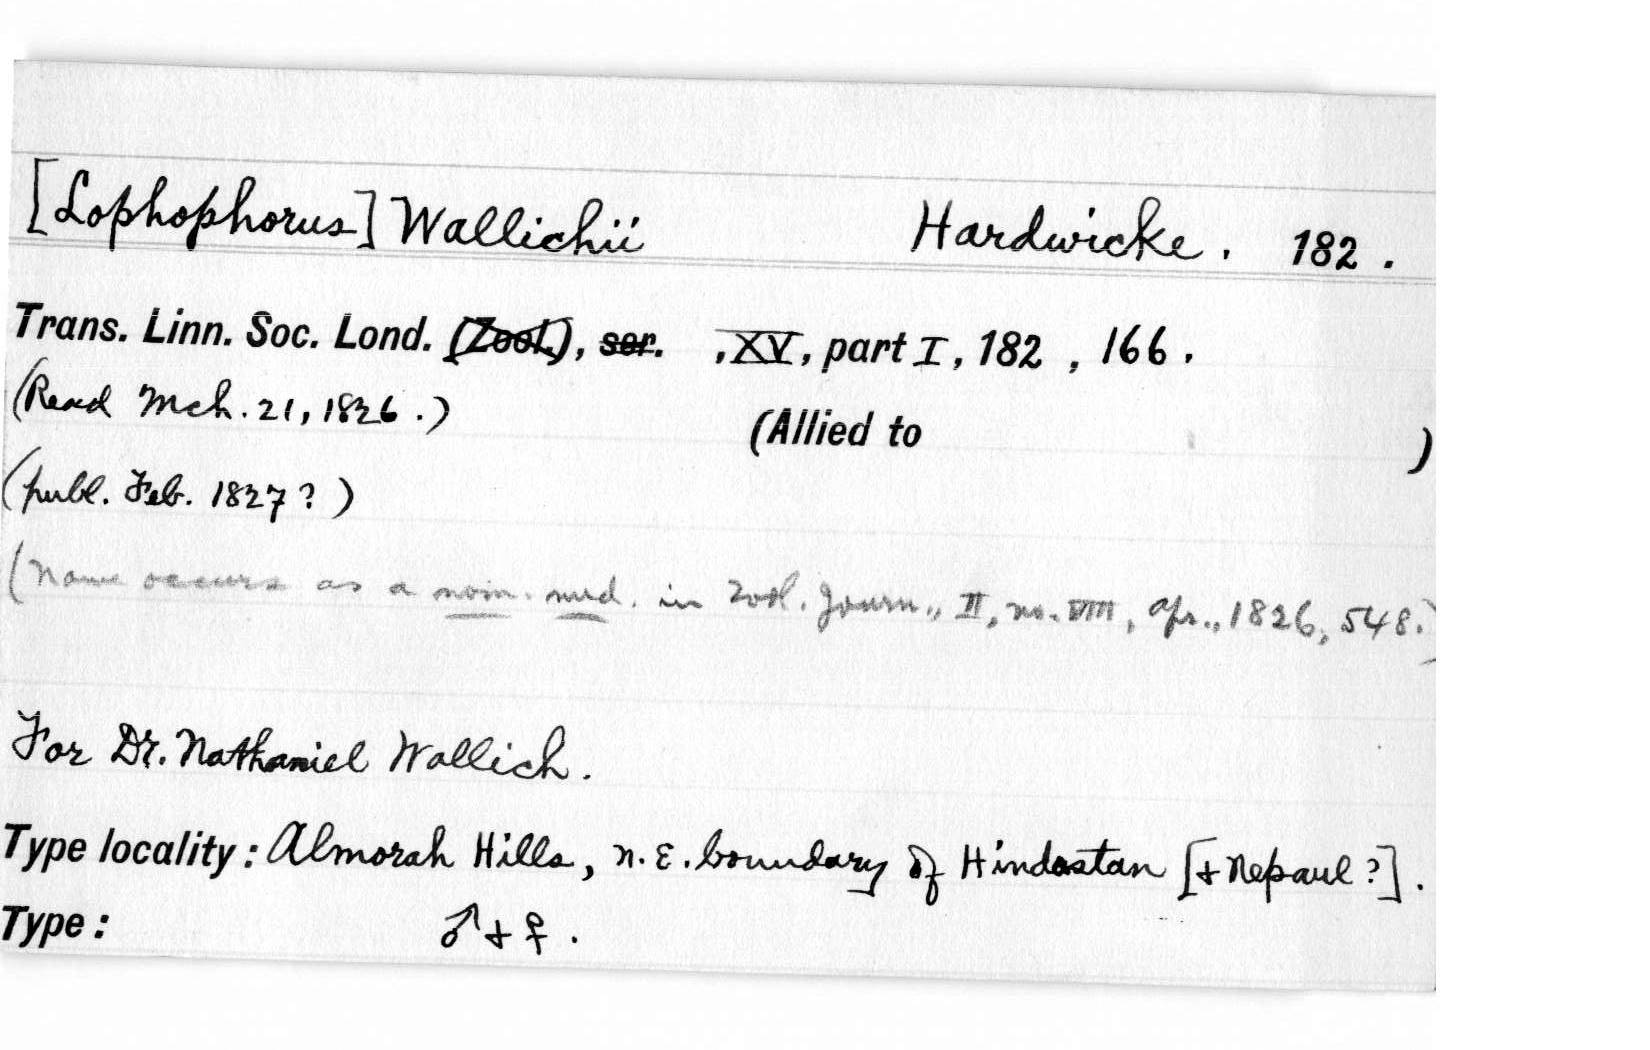 [Lophophorus] Wallichii Hardwicke. 182 .
Trans. Linn. Soc. Lond. (Zool.), ser. , XV, part I, 182 , 166.
(Read Mch. 21, 1826.)
(Allied to )
(publ. Feb. 1827?)
(Name occurs as a nom. nud. in Zool. Journ., II, no. VIII, Apr., 1826, 548.)
For Dr. Nathaniel Wallich.
Type locality: Almorah Hills, N.E. boundary of Hindostan [+ Nepaul?].
Type: ♂ + ♀.